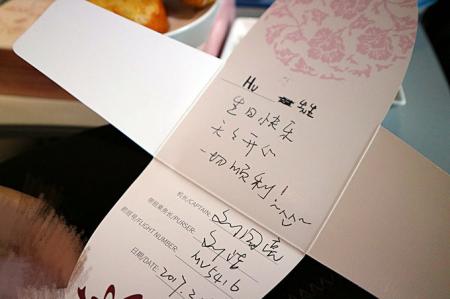 Hu 先生
生日快乐
天天开心
一切顺利!
机长/CAPTAIN:
带班乘务长/PURSER:
航班号/FLIGHT NUMBER: MU5416
日期/DATE: 2017.2